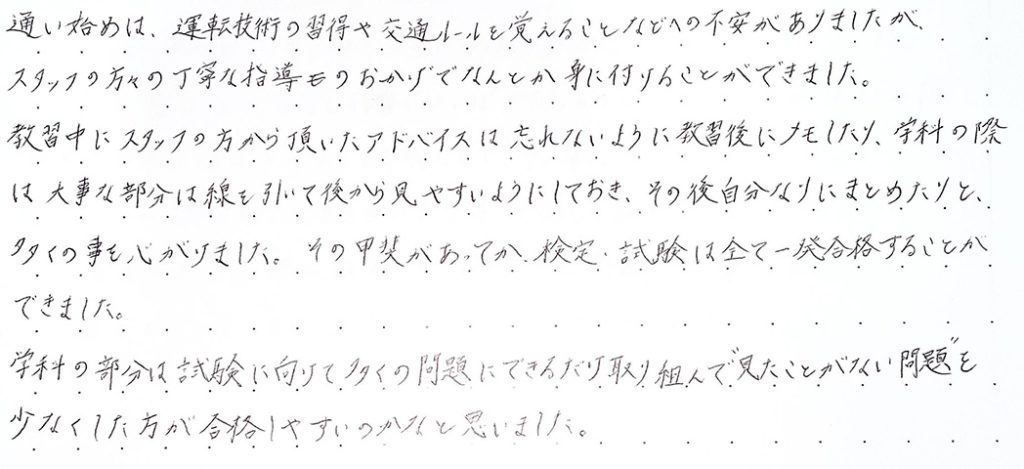 通い始めは、運転技術の習得や交通ルールを覚えることなどへの不安がありましたが、
スタッフの方々の丁寧な指導もあのおかげでなんとか身に付けることができました。
教習中にスタッフの方から頂いたアドバイスは忘れないように教習後にメモしたり、学科の際
は大事な部分は線を引いて後から見やすいようにしておき、その後自分なりにまとめたりと、
多くの事を心がけました。その甲斐があってか、検定・試験は全て一発合格することが
できました。
学科の部分は試験に向けて多くの問題にできるだけ取り組んで"見たことがない問題"を
少なくした方が合格しやすいのかなと思いました。